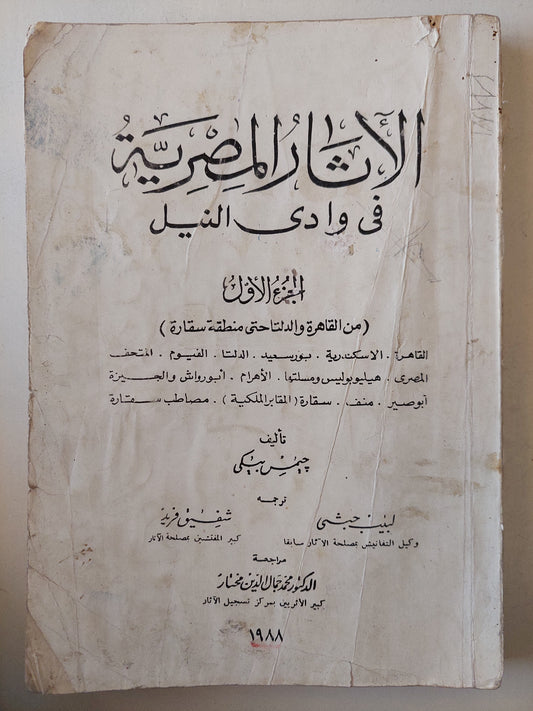 الآثار المصرية
فى وادى النيل
الجزء الأول
(من القاهرة والدلتا حتى منطقة سقارة)
القاهرة . الاسكندرية . بورسعيد . الدلتا . الفيوم . المتحف
المصرى . هيليوبوليس ومسلتها . الأهرام . أبورواش والجيزة
أبوصير . منف . سقارة (المقابر الملكية) . مصاطب سقارة
تأليف
چيمس بيكى
ترجمه
لبيب حبشى شفيق فريد
وكيل التفاتيش بمصلحة الآثار سابقا كبير المفتشين بمصلحة الآثار
مراجعة
الدكتور محمد جمال الدين مختار
كبير الأثريين بمركز تسجيل الآثار
١٩٨٨